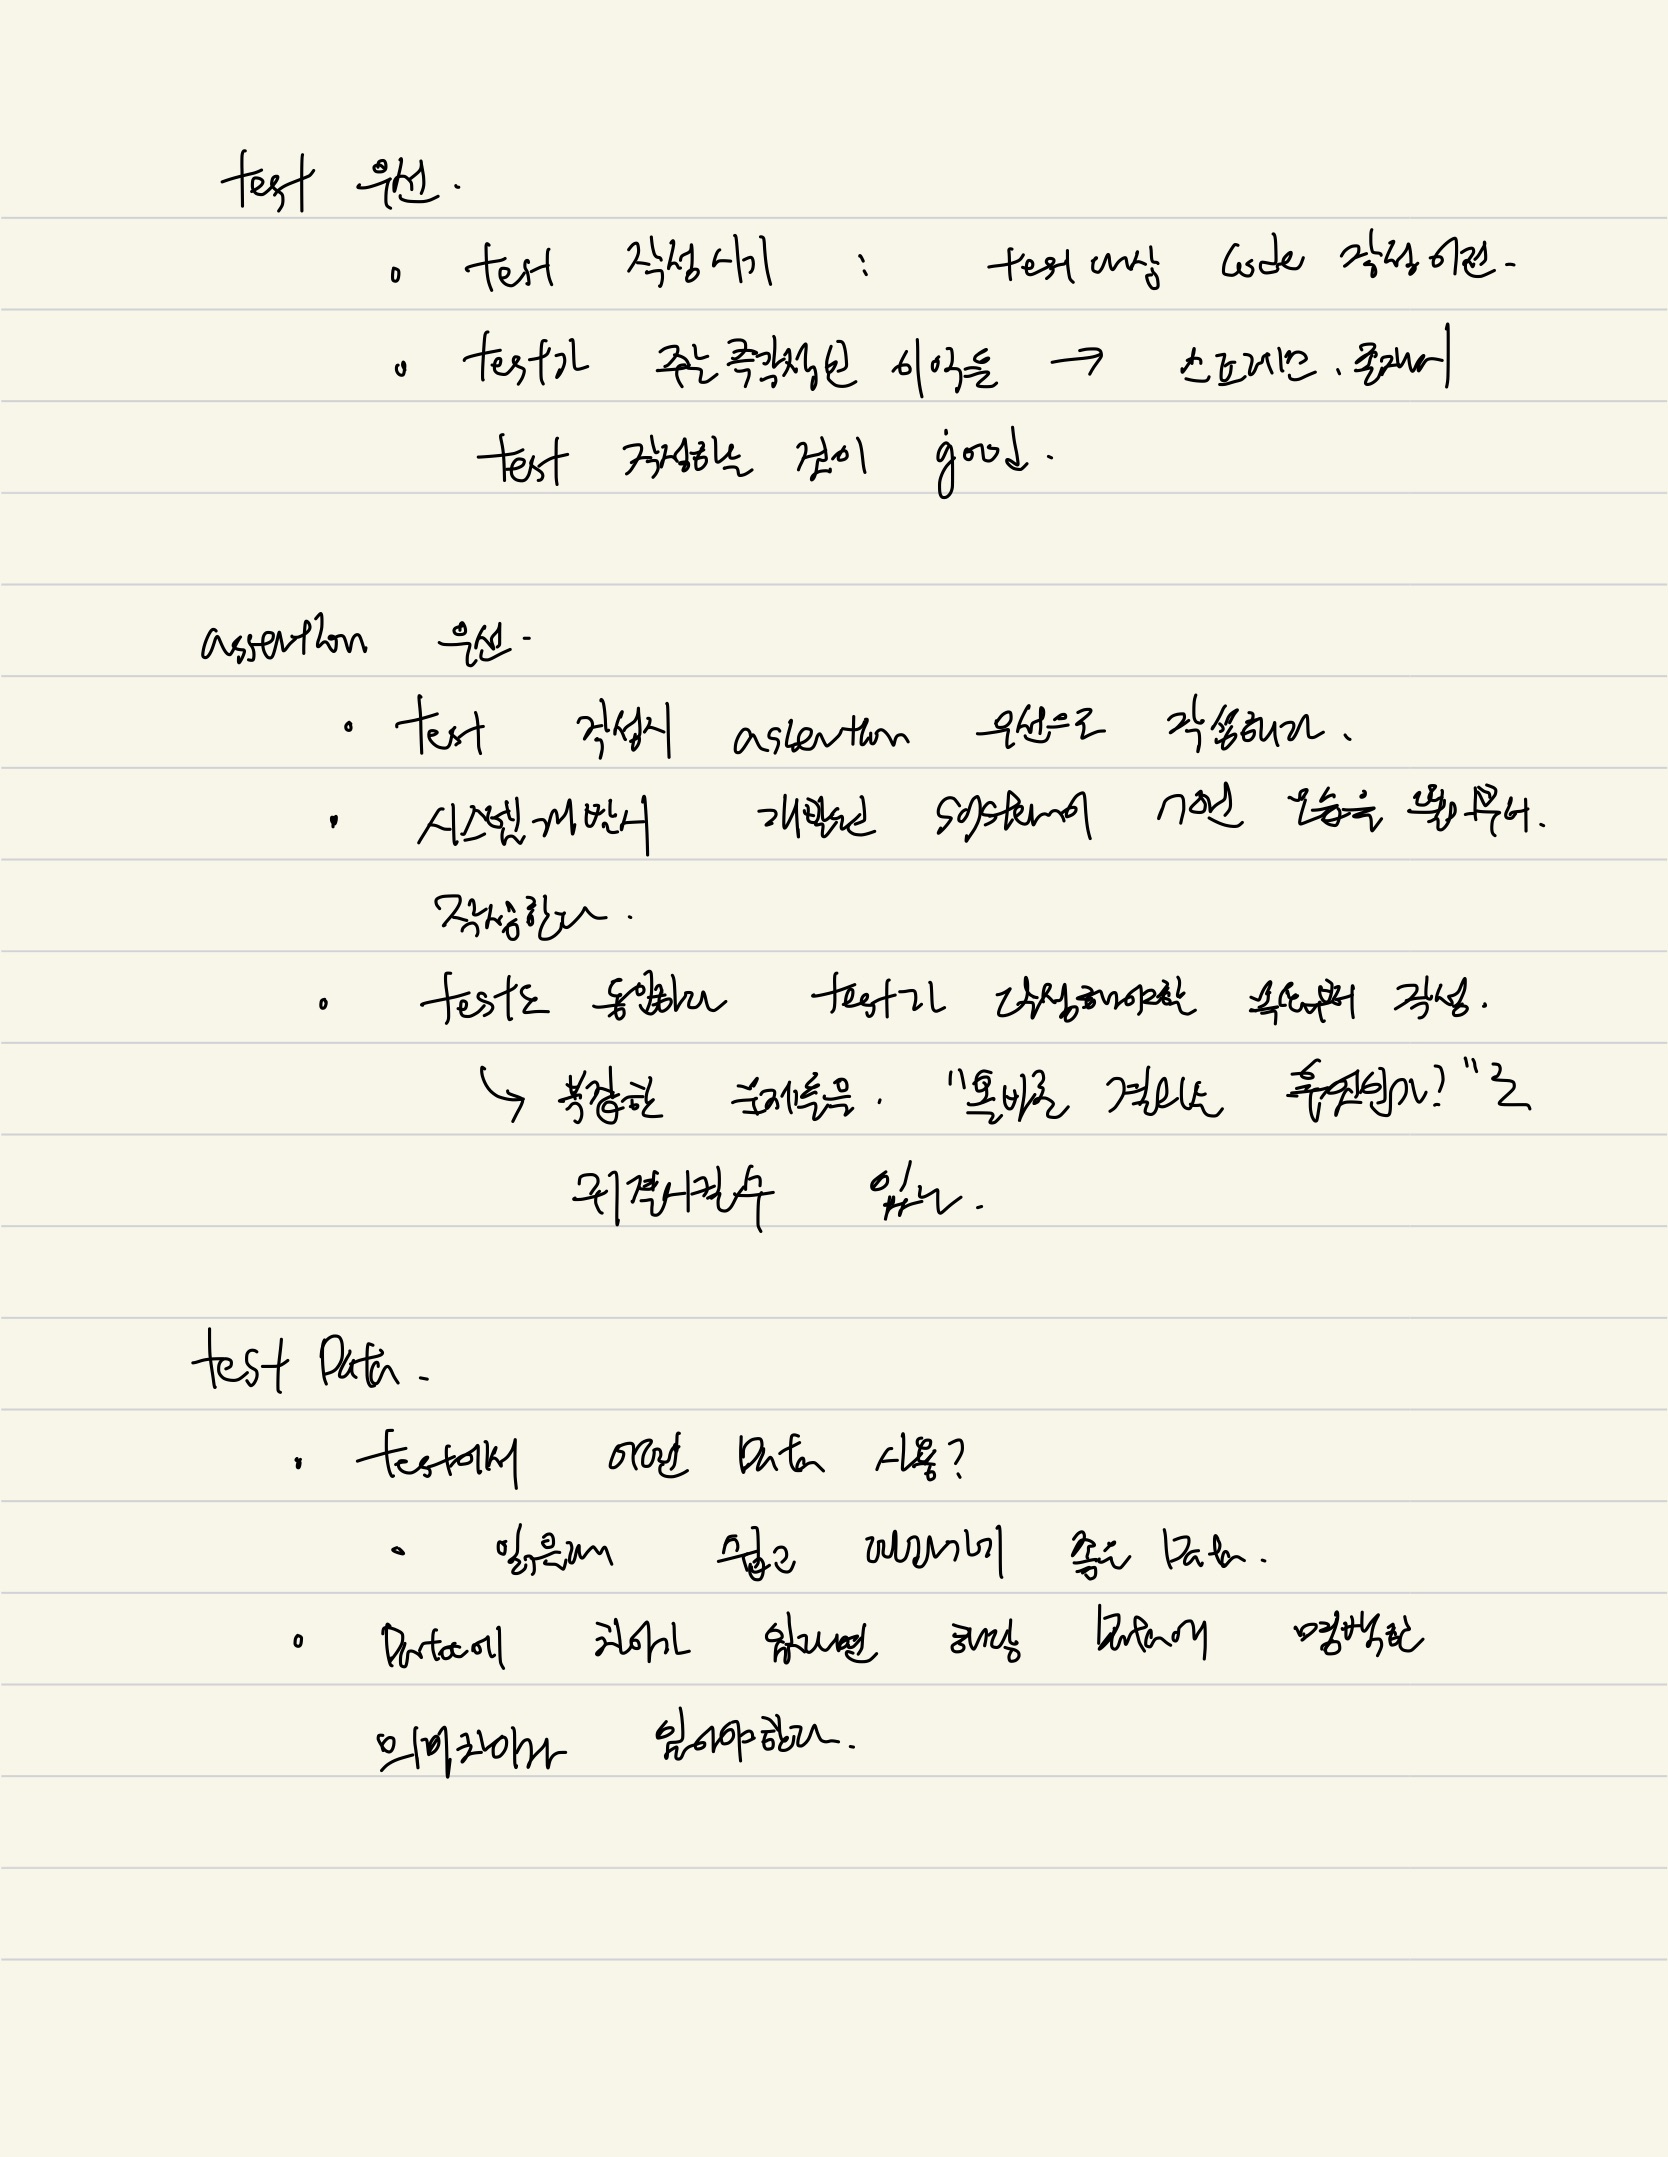 test 우선.
o test 작성시기 : test대상 Code 작성이전.
o test가 주는 즉각적인 이익들 → 스트레스.
test 작성하는 것이 good.
assertion 우선.
• test 작성시 assertion 우선으로 작성해라.
• 시스템 개발시 개발된 system이 모습을 부터.
작성한다.
o test도 동일하다 test가 작성.
↳ 복잡한 문제들은. "올바른 결과는 무엇인가?"로
귀결시킬수 있다.
test Data.
• test에서 어떤 Data 사용?
• 읽을때 쉽고 따라가기 좋은 Data.
o Data에 차이가 있다면 해당 Data에 명백한
의미차이가 있어야한다.